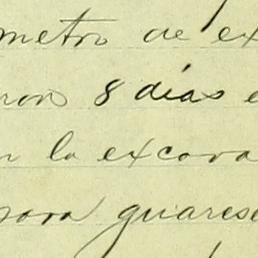 metro de ex
ron 8 días e
n la excava
para guarese